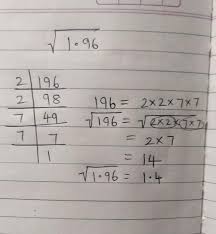 √1.96
2 | 196
2 | 98
7 | 49
7 | 7
1
196 = 2×2×7×7
√196 = √2×2×7×7
= 2×7
= 14
√1.96 = 1.4